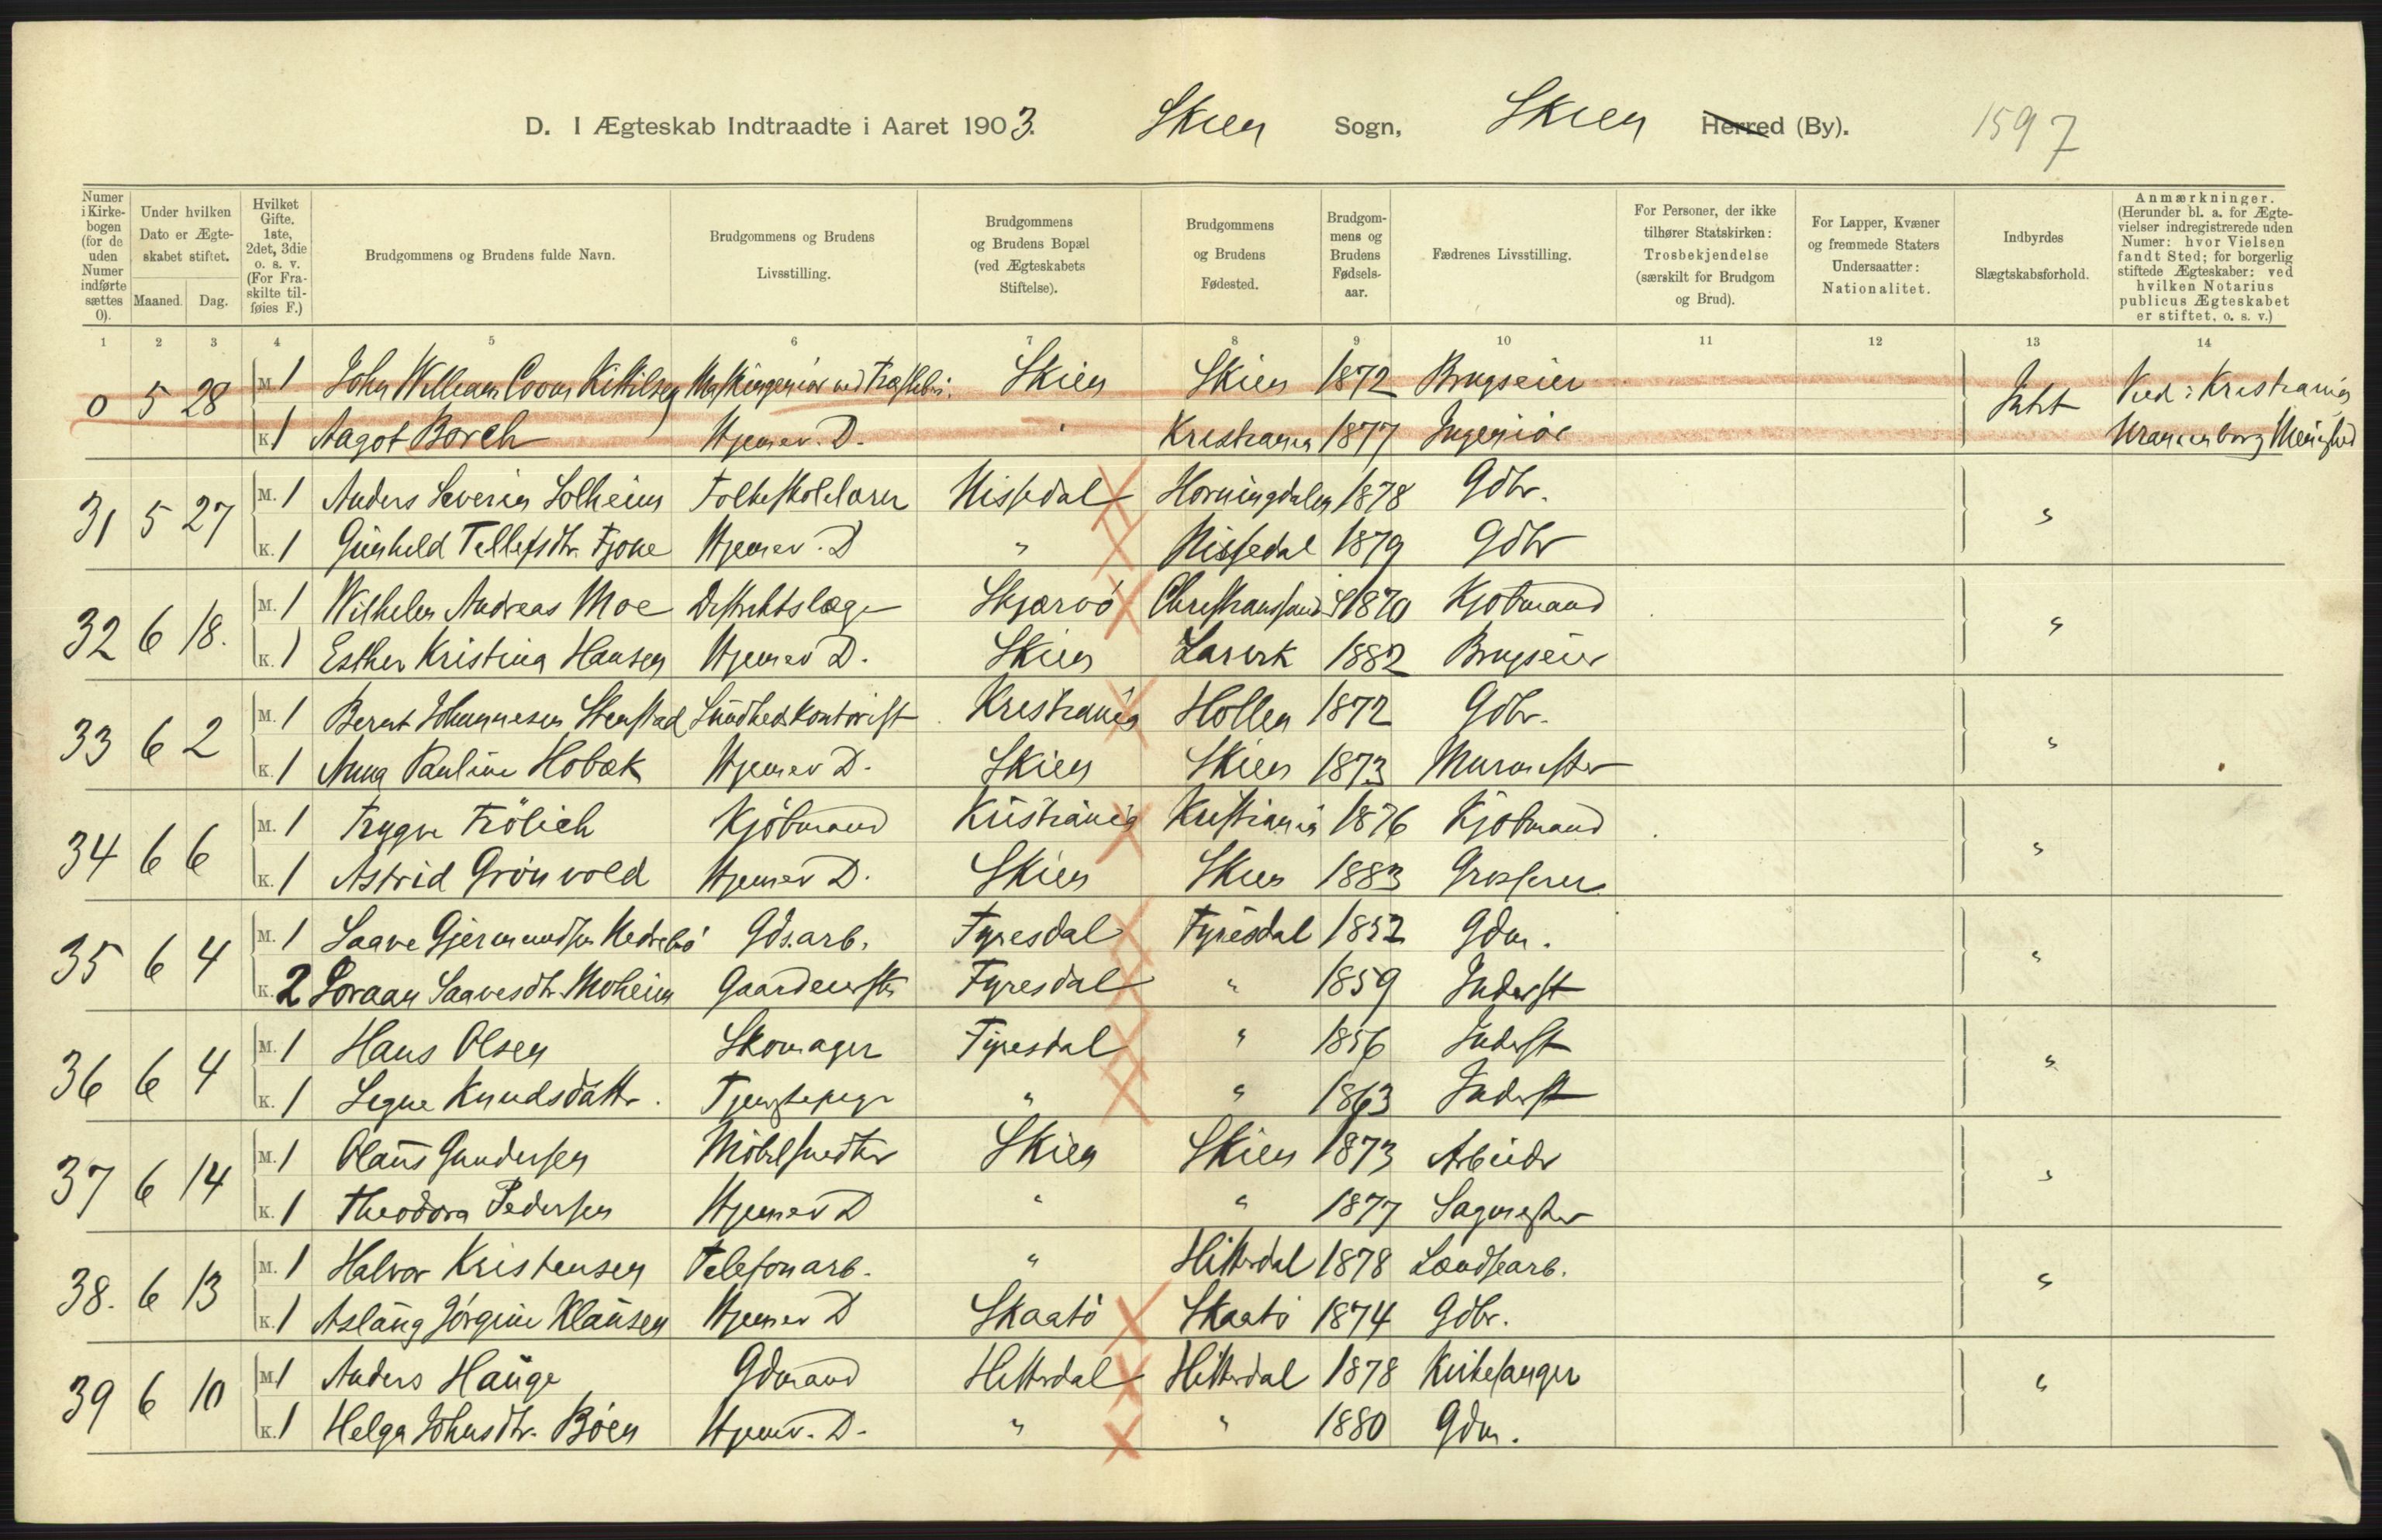 D. I Ægteskab Indtraadte i Aaret 1903. Skien Sogn, Skien Herred (By). 1597
Numer i Kirkebogen (for de uden Numer indførte sættes 0).
Under hvilken Dato er Ægteskabet stiftet. Maaned. Dag.
Hvilket Gifte. 1ste, 2det, 3die o. s. v. (For Fraskilte tilføies F.)
Brudgommens og Brudens fulde Navn.
Brudgommens og Brudens Livsstilling.
Brudgommens og Brudens Bopæl (ved Ægteskabets Stiftelse).
Brudgommens og Brudens Fødested.
Brudgommens og Brudens Fødselsaar.
Fædrenes Livsstilling.
For Personer, der ikke tilhører Statskirken: Trosbekjendelse (særskilt for Brudgom og Brud).
For Lapper, Kvæner og fremmede Staters Undersaatter: Nationalitet.
Indbyrdes Slægtskabsforhold.
Anmærkninger. (Herunder bl. a. for Ægtevielser indregistrerede uden Numer: hvor Vielsen fandt Sted; for borgerlig stiftede Ægteskaber: ved hvilken Notarius publicus Ægteskabet er stiftet, o. s. v.)
1 2 3 4 5 6 7 8 9 10 11 12 13 14
0 5 28 M. 1 John William Kittilsen Skien Skien 1872 Brugseier Intet Vied i Kristiania
K. 1 Aagot Borch Hjemev. D. " Kristiania 1877 Ingeniör Uranienborg Menighed
31 5 27 M. 1 Anders Severin Solheim Folkeskolelærer Nissedal Horningdalen 1878 Gdbr. "
K. 1 Gunhild Tellefsdtr. Fjone Hjemev. D " Nissedal 1879 Gdbr
32 6 18. M. 1 Wilhelm Andreas Moe Distriktslæge Skjærvö Christianssand S 1870 Kjöbmand "
K. 1 Esther Kristina Hansen Hjemev D. Skien Larvik 1882 Brugseier
33 6 2 M. 1 Bernt Johannesen Stenstad Sundhedskontorist Kristiania Hollen 1872 Gdbr. "
K. 1 Anna Pauline Hobæk Hjemev D. Skien Skien 1873 Murmester
34 6 6 M. 1 Trygve Frölich Kjöbmand Kristiania Kristiania 1876 Kjöbmand "
K. 1 Astrid Grönvold Hjemev D. Skien Skien 1883 Grosserer
35 6 4 M. 1 Saave Gjermundsen Gds.arb. Fyresdal Fyresdal 1852 Gdm. "
K. 2 Saavesdtr. Moheim Fyresdal " 1859 Inderst
36 6 4 M. 1 Hans Olsen Skomager Fyresdal " 1856 Inderst "
K. 1 Signe Knudsdattr. Tjenestepige " " 1863 Inderst
37 6 14 M. 1 Olaus Gundersen Möbelsnedker Skien Skien 1873 Arbeider "
K. 1 Theodora Pedersen Hjemev D " " 1877 Sagmester
38. 6 13 M. 1 Halvor Kristensen Telefonarb. " Hitterdal 1878 Landsearb. "
K. 1 Aslaug Jörgine Klausen Hjemev D Skaatö Skaatö 1874 Gdbr.
39 6 10 M. 1 Anders Hauge Gdmand Hitterdal Hitterdal 1878 Kirkesanger "
K. 1 Helga Johnsdtr. Böen Hjemv. D. " " 1880 Gdm.